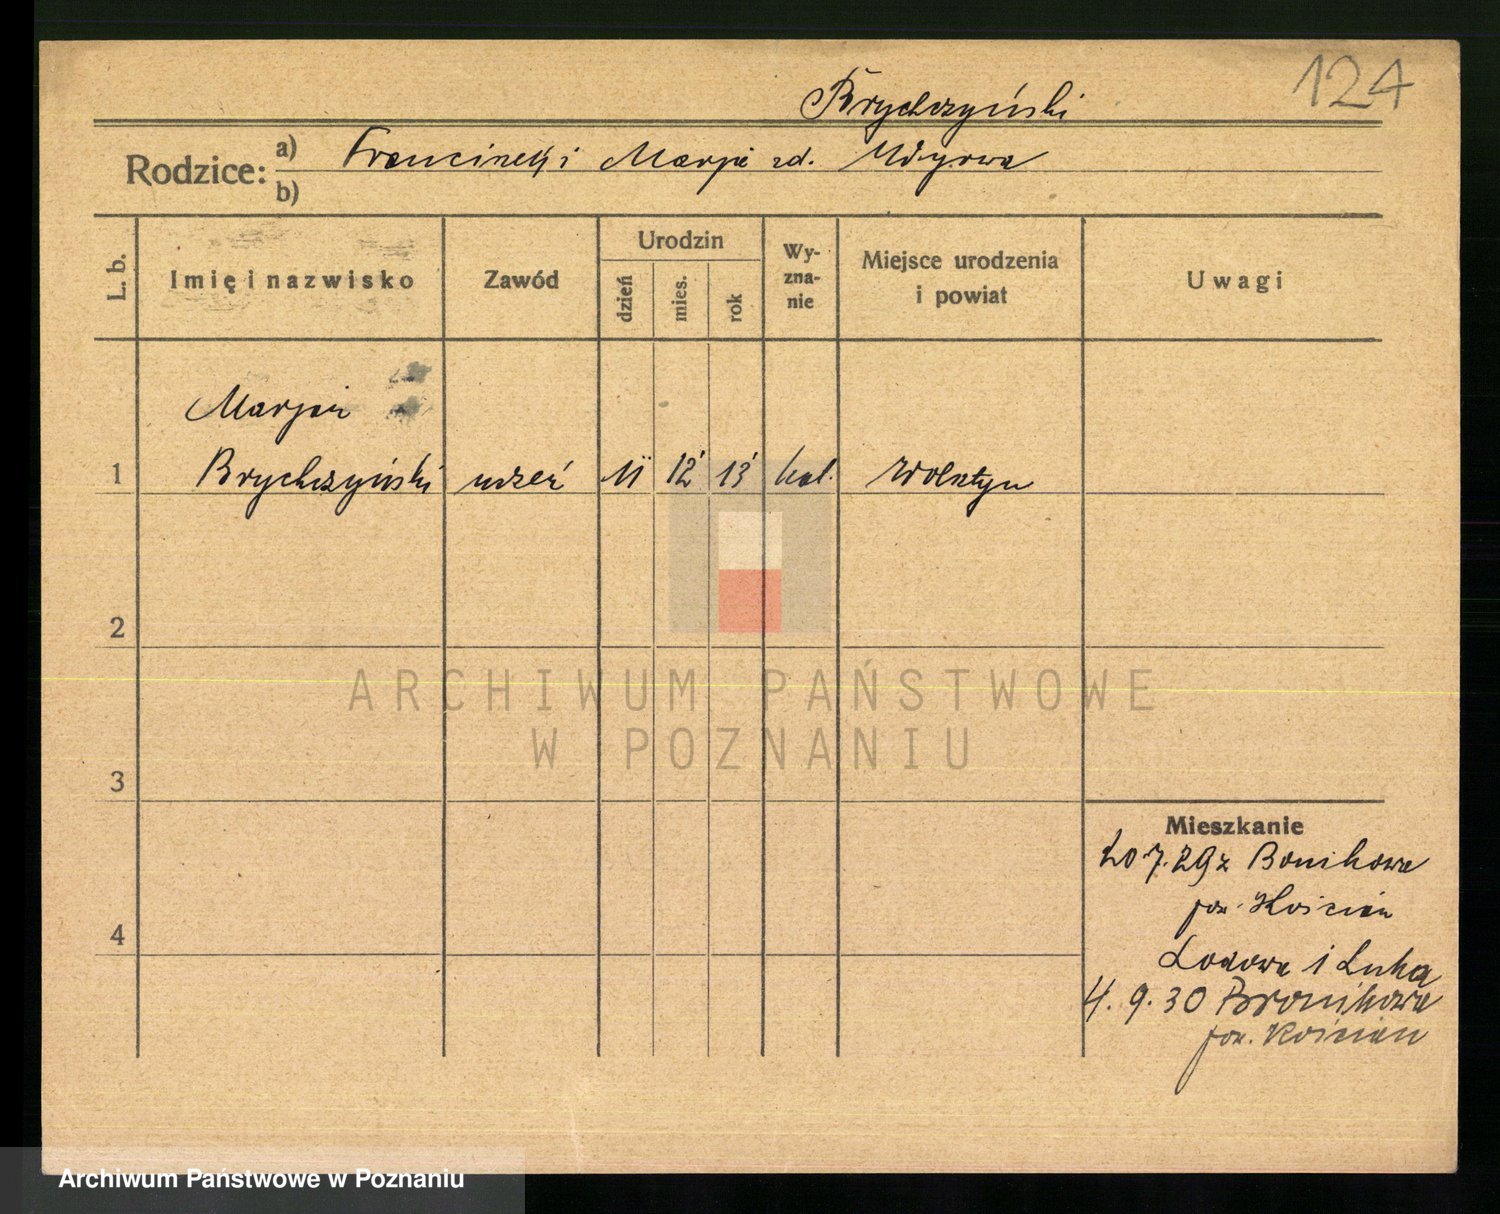 124
Brychczyński
Rodzice:
a) Franciszek i Marja zd.
b)
L. b.
Imię i nazwisko
Zawód
Urodzin
dzień
mies.
rok
Wy-
zna-
nie
Miejsce urodzenia
i powiat
Uwagi
Marjan
1 Brychczyński uczeń 11 12 13 kat. Wolsztyn
2
3
4
Mieszkanie
20.7.29 z Bonikowa
pow. Kościan
i Luka
4.9.30 Bronikowa
pow. Kościan
ARCHIWUM PAŃSTWOWE
W POZNANIU
Archiwum Państwowe w Poznaniu